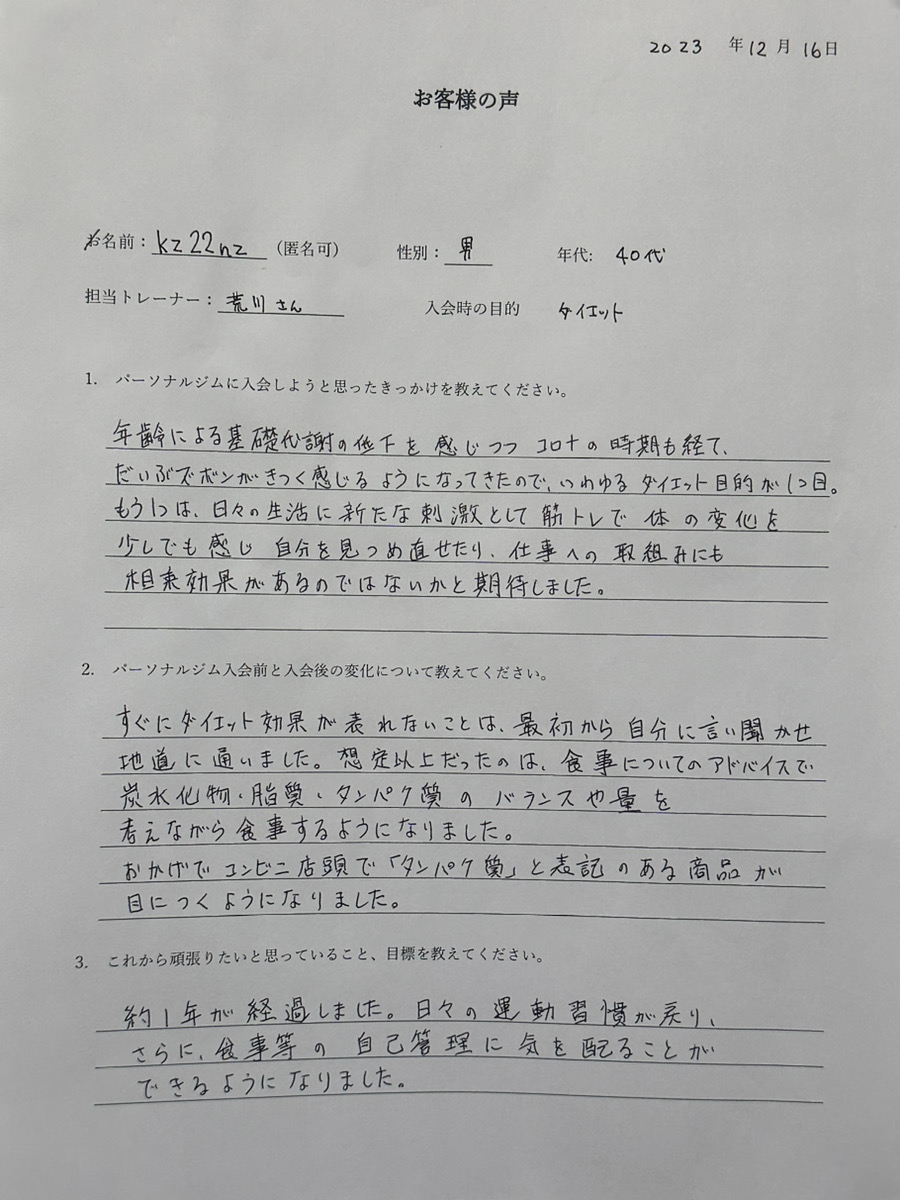 2023 年 12 月 16 日
お客様の声
お名前： kz22nz （匿名可） 性別： 男 年代: 40代
担当トレーナー： 荒川さん 入会時の目的 ダイエット
1. パーソナルジムに入会しようと思ったきっかけを教えてください。
年齢による基礎代謝の低下を感じつつコロナの時期も経て、
だいぶズボンがきつく感じるようになってきたので、いわゆるダイエット目的が1つ目。
もう1つは、日々の生活に新たな刺激として筋トレで体の変化を
少しでも感じ自分を見つめ直せたり、仕事への取組みにも
相乗効果があるのではないかと期待しました。
2. パーソナルジム入会前と入会後の変化について教えてください。
すぐにダイエット効果が表れないことは、最初から自分に言い聞かせ
地道に通いました。想定以上だったのは、食事についてのアドバイスで
炭水化物・脂質・タンパク質のバランスや量を
考えながら食事するようになりました。
おかげでコンビニ店頭で「タンパク質」と表記のある商品が
目につくようになりました。
3. これから頑張りたいと思っていること、目標を教えてください。
約1年が経過しました。日々の運動習慣が戻り、
さらに、食事等の自己管理に気を配ることが
できるようになりました。